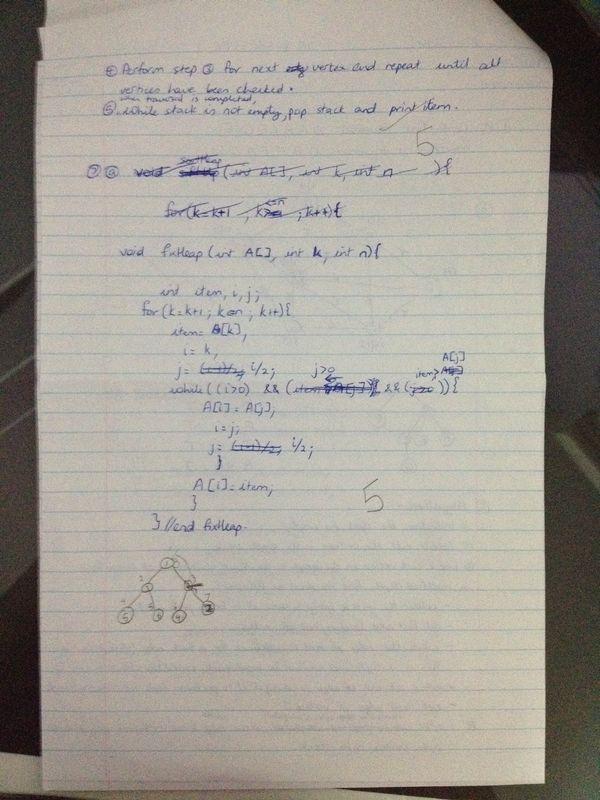 ④ Perform step ③ for next vertex and repeat until all
vertices have been checked.
when traversal is completed,
⑤ while stack is not empty, pop stack and print item.
5
⑦ ⓐ void fixHeap (int A[], int k, int n ){
for (k=k+1 , k<=n ; k++){
void fixHeap (int A[], int k, int n){
int item, i, j;
for (k=k+1; k<=n; k++){
item = A[k];
i = k,
j = (i-1)/2; i/2;
j>0
item > A[j]
while ((i>0) && (item > A[j]) && (j>0)){
A[i] = A[j];
i=j;
j = (i-1)/2; i/2;
}
A[i]=item;
}
5
} //end fixHeap.